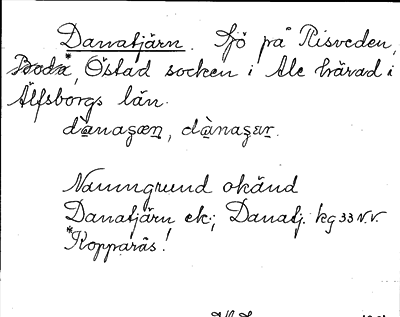 Danatjärn. Sjö på Risveden,
Boda*, Östad socken i Ale härad i
Älfsborgs län.
Namngrund okänd
Danatjärn ek; Danatj. kg 33 N.V.
*Kopparås!